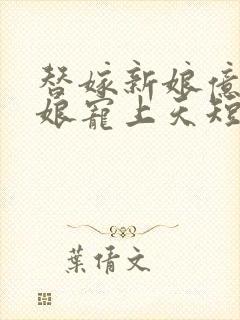 替嫁新娘億
娘寵上天短
葉倩文